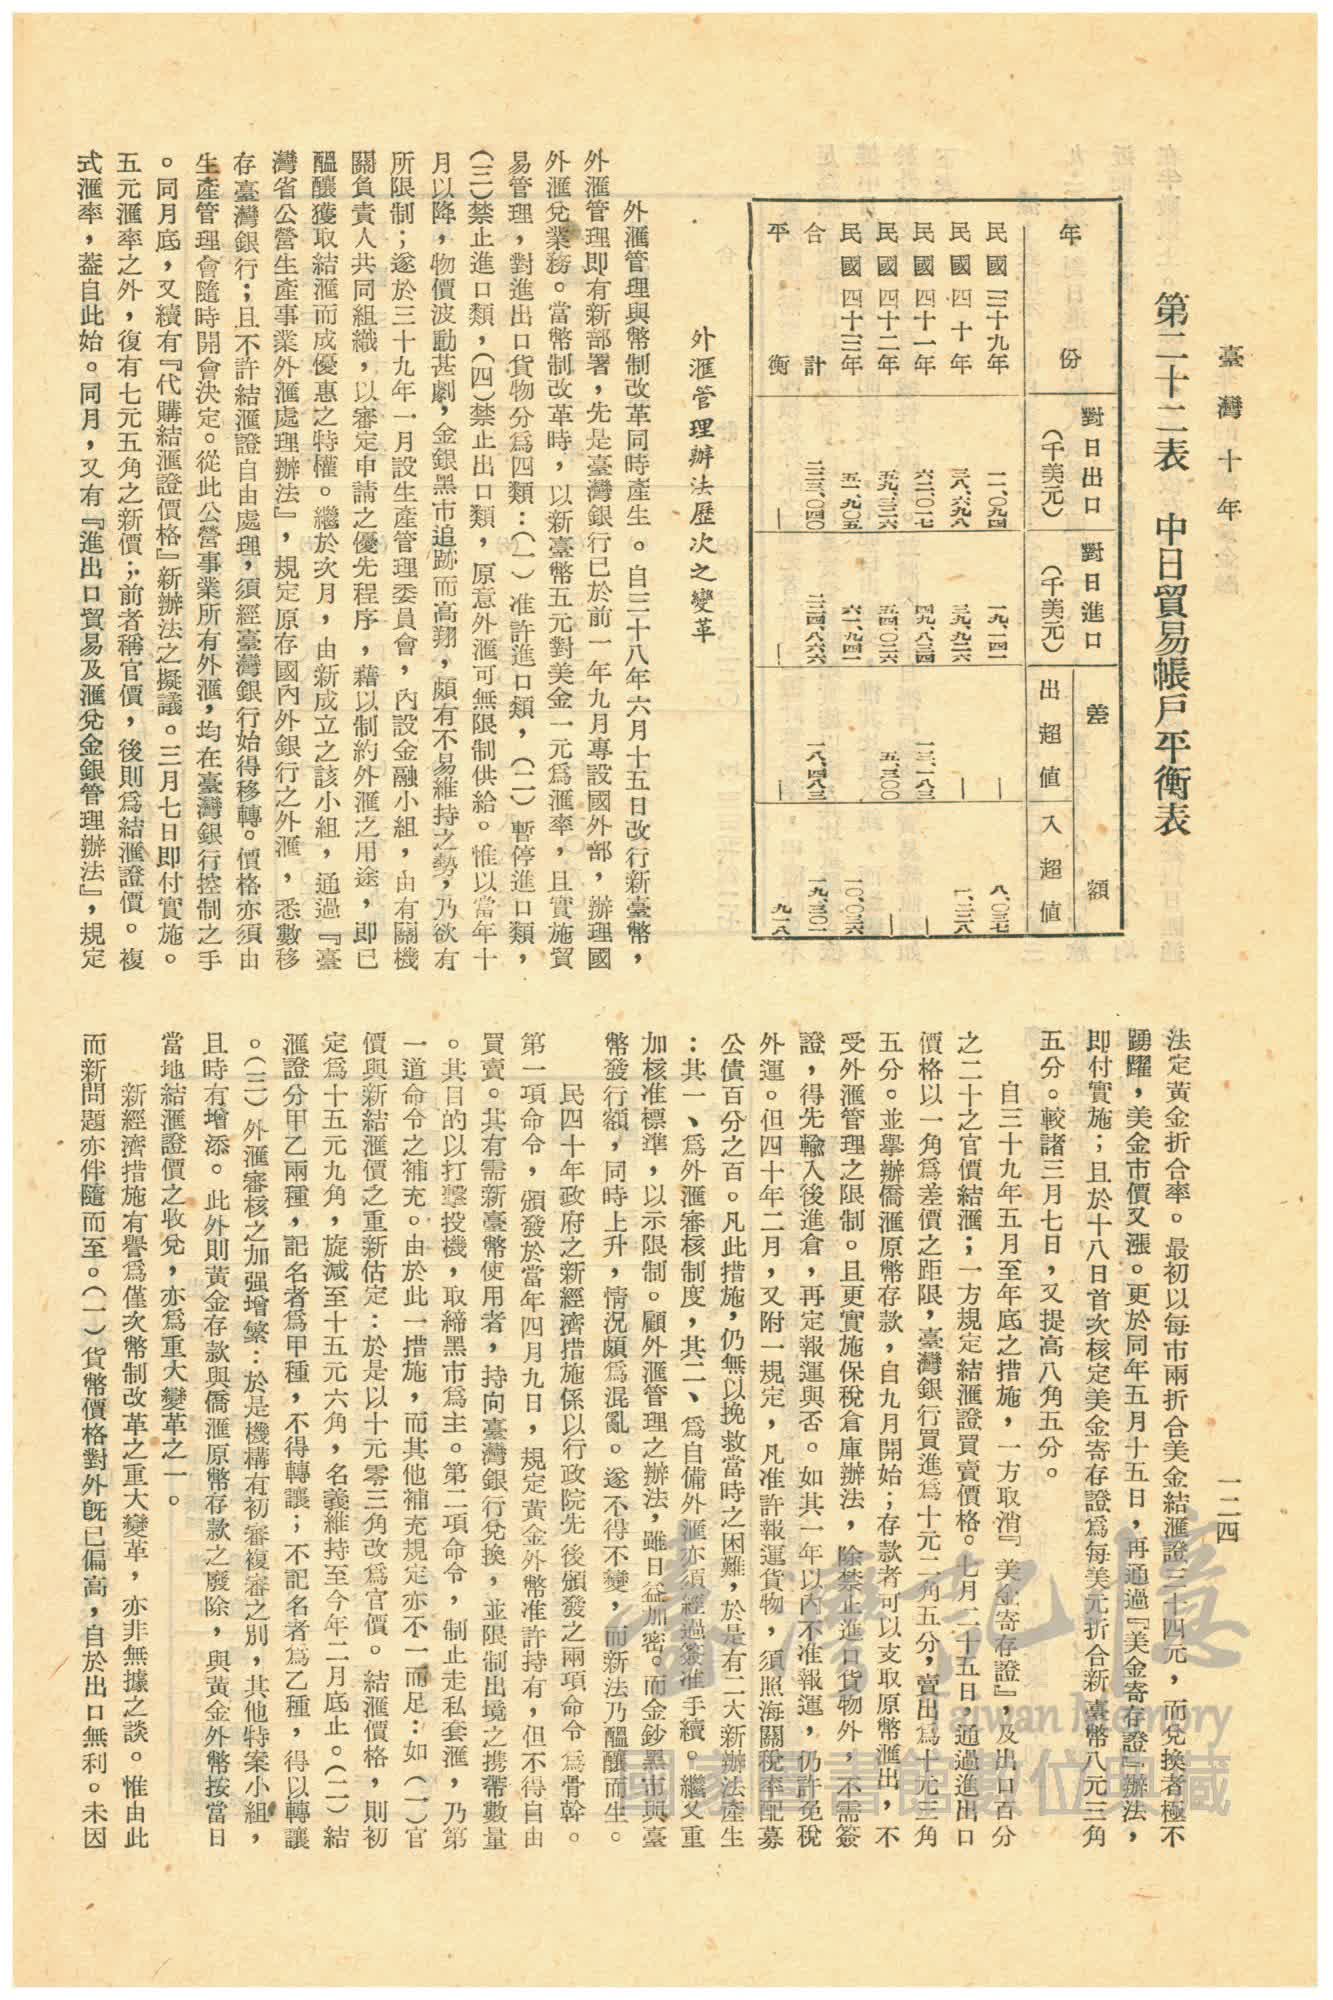 臺灣十年
一二四
第二十二表　中日貿易帳戶平衡表
年份　對日出口（千美元）　對日進口（千美元）　差額　出超值　入超值
民國三十九年　一一、〇九四　一九、一四一　｜　八、〇三七
民國四十年　三八、六九八　三九、九二六　｜　一、二二八
民國四十一年　六二、〇一七　四九、八三四　一三、一八三　｜
民國四十二年　五九、三二六　五四、〇二六　五、三〇〇　｜
民國四十三年　五一、九〇五　六一、九四一　　一〇、〇三六
合計　二二三、〇四〇　二二四、八六六　一八、四八三　一九、三〇一
平衡　｜　｜　｜　九一八
外滙管理辦法歷次之變革
外滙管理與幣制改革同時產生。自三十八年六月十五日改行新臺幣，
外滙管理即有新部署，先是臺灣銀行已於前一年九月專設國外部，辦理國
外滙兌業務。當幣制改革時，以新臺幣五元對美金一元爲滙率，且實施貿
易管理，對進出口貨物分爲四類：（一）准許進口類，（二）暫停進口類，
（三）禁止進口類，（四）禁止出口類，原意外滙可無限制供給。惟以當年十
月以降，物價波動甚劇，金銀黑市追跡而高翔，頗有不易維持之勢，乃欲有
所限制；遂於三十九年一月設生產管理委員會，內設金融小組，由有關機
關負責人共同組織，以審定申請之優先程序，藉以制約外滙之用途，即已
醞釀獲取結滙而成優惠之特權。繼於次月，由新成立之該小組，通過『臺
灣省公營生產事業外滙處理辦法』，規定原存國內外銀行之外滙，悉數移
存臺灣銀行；且不許結滙證自由處理，須經臺灣銀行始得移轉。價格亦須由
生產管理會隨時開會決定。從此公營事業所有外滙，均在臺灣銀行控制之手
。同月底，又續有『代購結滙證價格』新辦法之擬議。三月七日即付實施。
五元滙率之外，復有七元五角之新價；前者稱官價，後則爲結滙證價。複
式滙率，葢自此始。同月，又有『進出口貿易及滙兌金銀管理辦法』，規定
法定黃金折合率。最初以每市兩折合美金結滙證三十四元，而兌換者極不
踴躍，美金市價又漲。更於同年五月十五日，再通過『美金寄存證』辦法，
即付實施；且於十八日首次核定美金寄存證爲每美元折合新臺幣八元三角
五分。較諸三月七日，又提高八角五分。
自三十九年五月至年底之措施，一方取消『美金寄存證』，及出口百分
之二十之官價結滙；一方規定結滙證買賣價格。七月二十五日，通過進出口
價格以一角爲差價之距限，臺灣銀行買進爲十元二角五分，賣出爲十元三角
五分。並擧辦僑滙原幣存款，自九月開始；存款者可以支取原幣滙出，不
受外滙管理之限制。且更實施保稅倉庫辦法，除禁止進口貨物外，不需簽
證，得先輸入後進倉，再定報運與否。如其一年以內不准報運，仍許免稅
外運。但四十年二月，又附一規定，凡准許報運貨物，須照海關稅率配募
公債百分之百。凡此措施，仍無以挽救當時之困難，於是有二大新辦法產生
：其一、爲外滙審核制度，其二、爲自備外滙亦須經過簽准手續。繼又重
加核准標準，以示限制。顧外滙管理之辦法，雖日益加密。而金鈔黑市與臺
幣發行額，同時上升，情況頗爲混亂。遂不得不變，而新法乃醞釀而生。
民四十年政府之新經濟措施係以行政院先後頒發之兩項命令爲骨幹。
第一項命令，頒發於當年四月九日，規定黃金外幣准許持有，但不得自由
買賣。其有需新臺幣使用者，持向臺灣銀行兌換，並限制出境之携帶數量
。其目的以打擊投機，取締黑市爲主。第二項命令，制止走私套滙，乃第
一道命令之補充。由於此一措施，而其他補充規定亦不一而足：如（一）官
價與新結滙價之重新估定：於是以十元零三角改爲官價。結滙價格，則初
定爲十五元九角，旋減至十五元六角，名義維持至今年二月底止。（二）結
滙證分甲乙兩種，記名者爲甲種，不得轉讓；不記名者爲乙種，得以轉讓
。（三）外滙審核之加强增繁：於是機構有初審複審之別，其他特案小組，
且時有增添。此外則黃金存款與僑滙原幣存款之廢除，與黃金外幣按當日
當地結滙證價之收兌，亦爲重大變革之一。
新經濟措施有譽爲僅次幣制改革之重大變革，亦非無據之談。惟由此
而新問題亦伴隨而至。（一）貨幣價格對外旣已偏高，自於出口無利。未因
臺灣記憶
Taiwan Memory
國家圖書館數位典藏